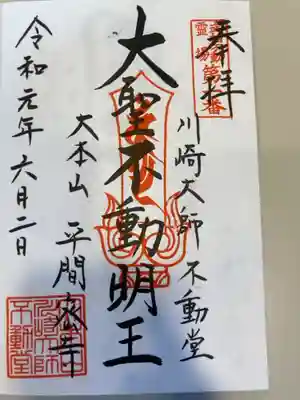 奉拝
川崎大師 不動堂
大聖不動明王
大本山 平間寺
令和元年六月二日